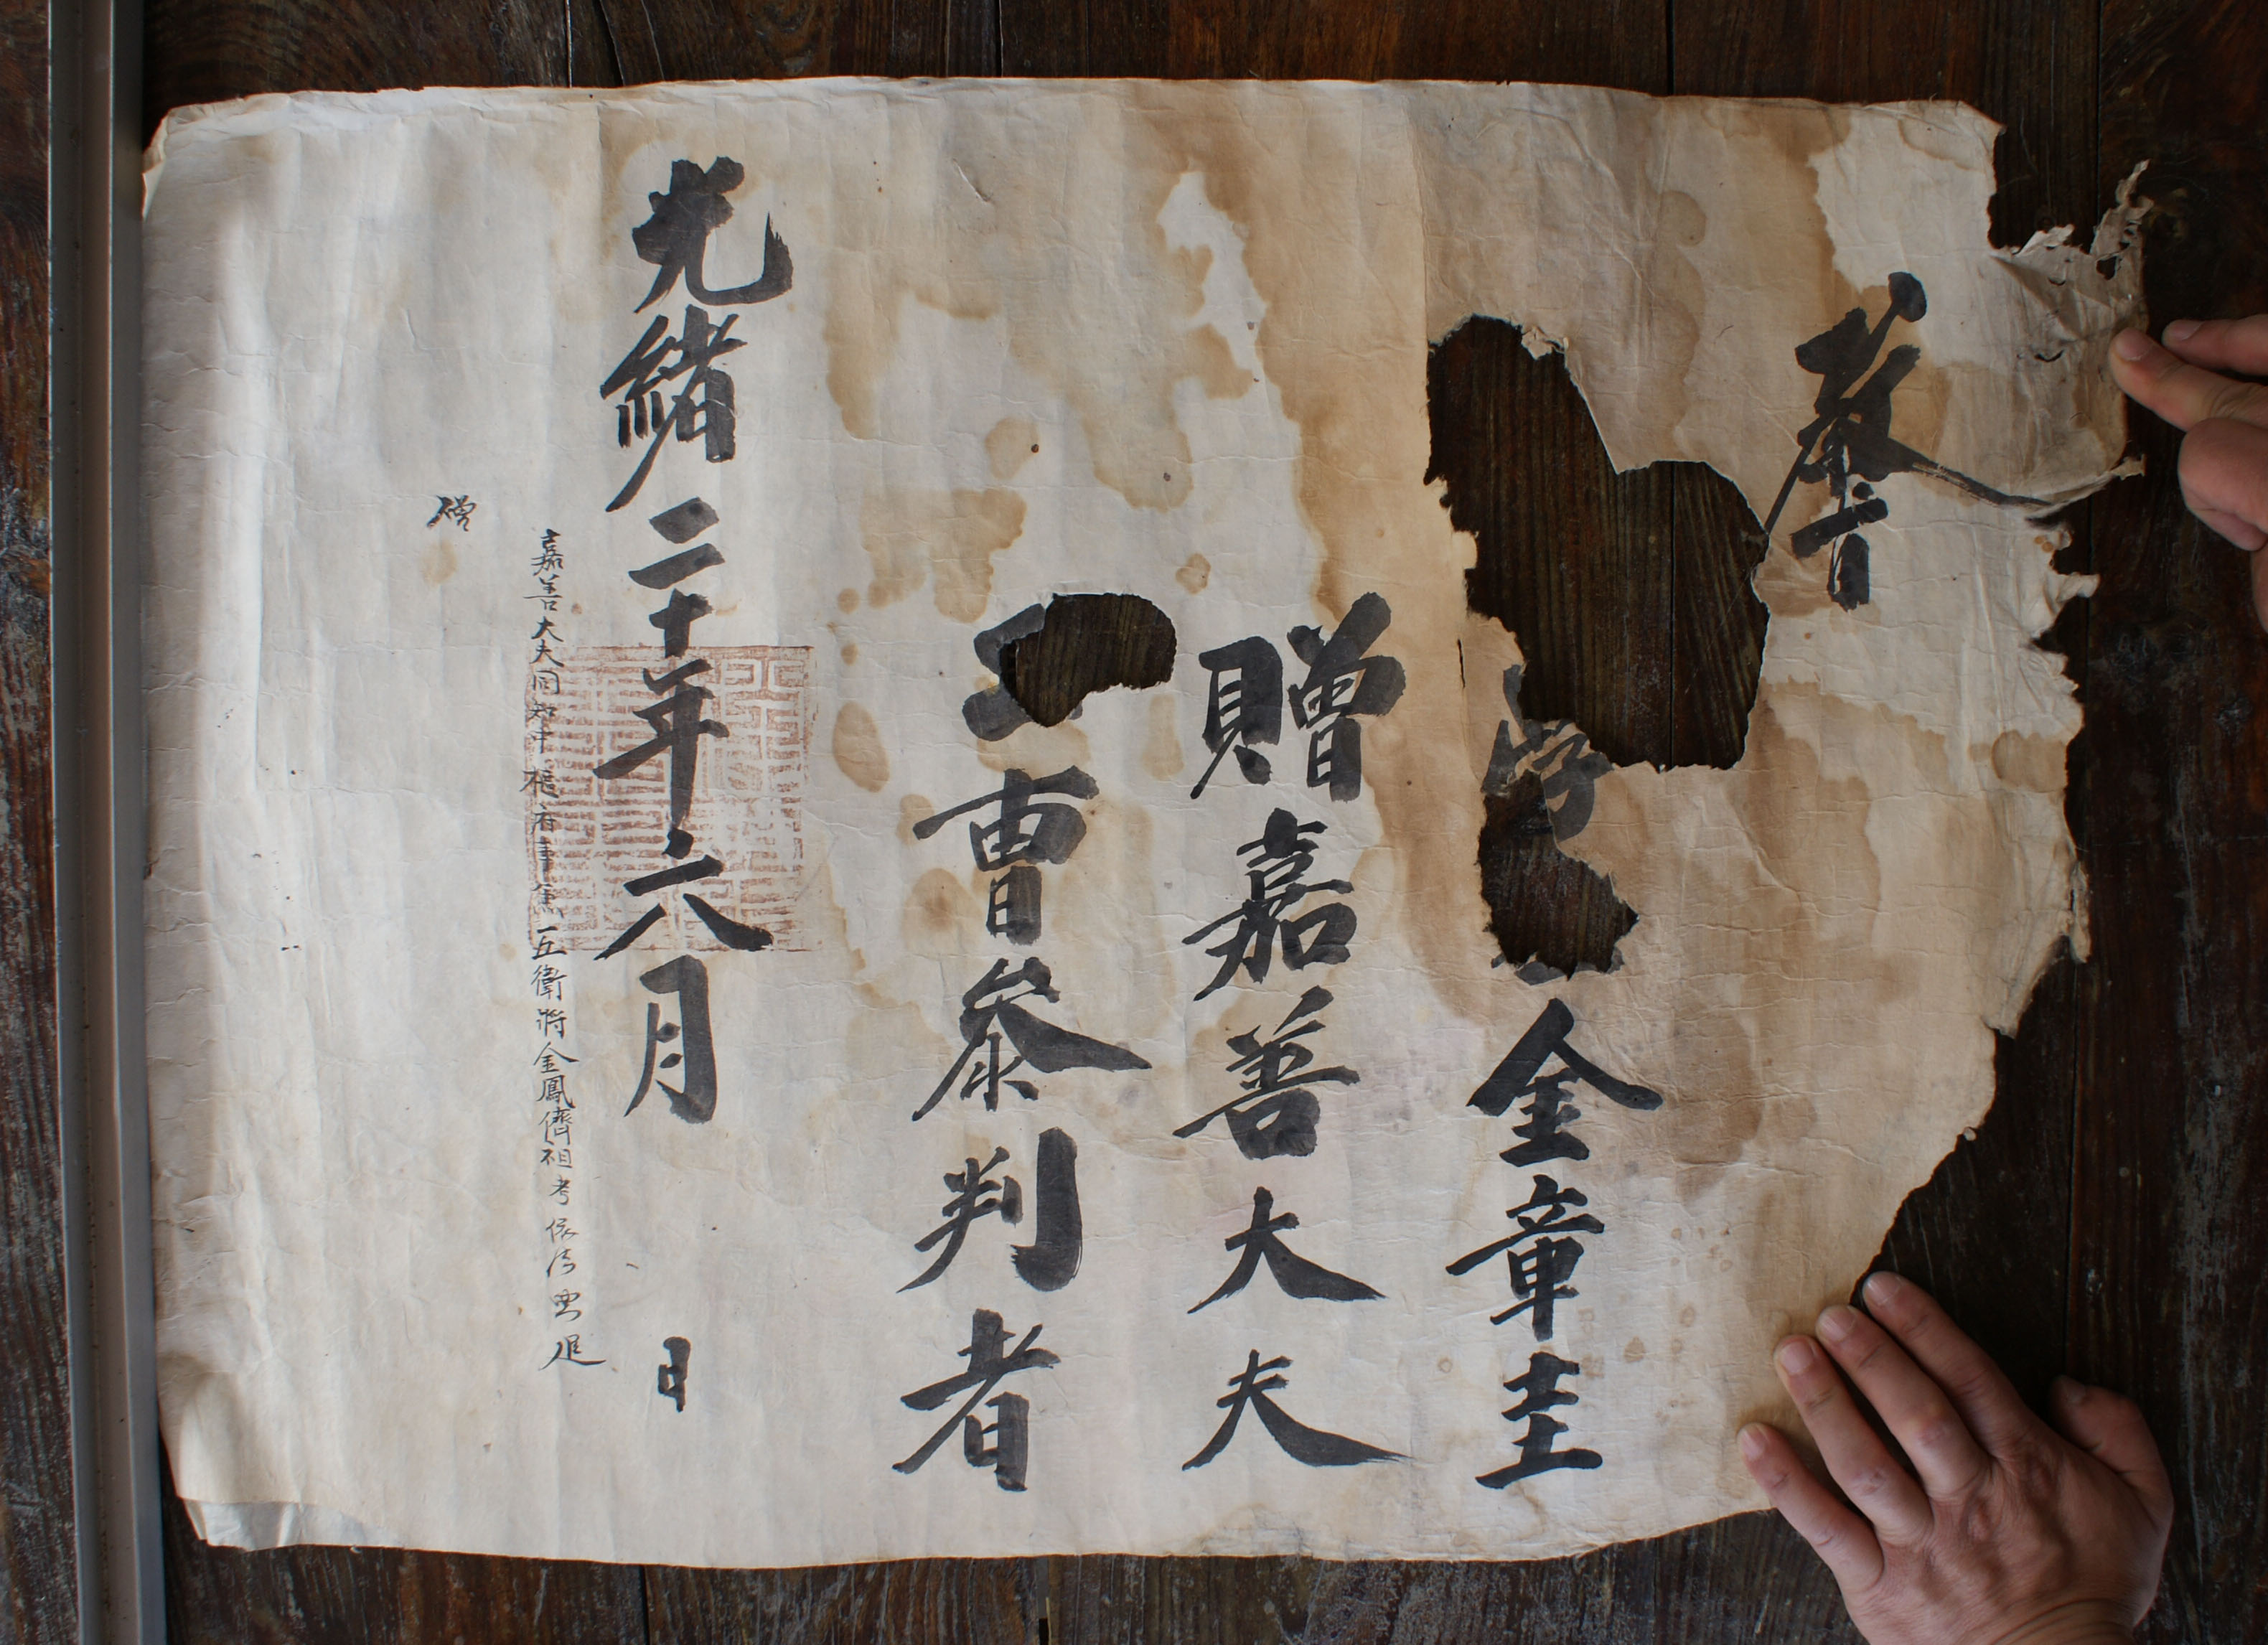 敎旨
學金章圭
贈嘉善大夫
曺參判者
光緖二十年六月 日
嘉善大夫同知中樞府事兼五衛將金鳳儕祖考依法典追
贈